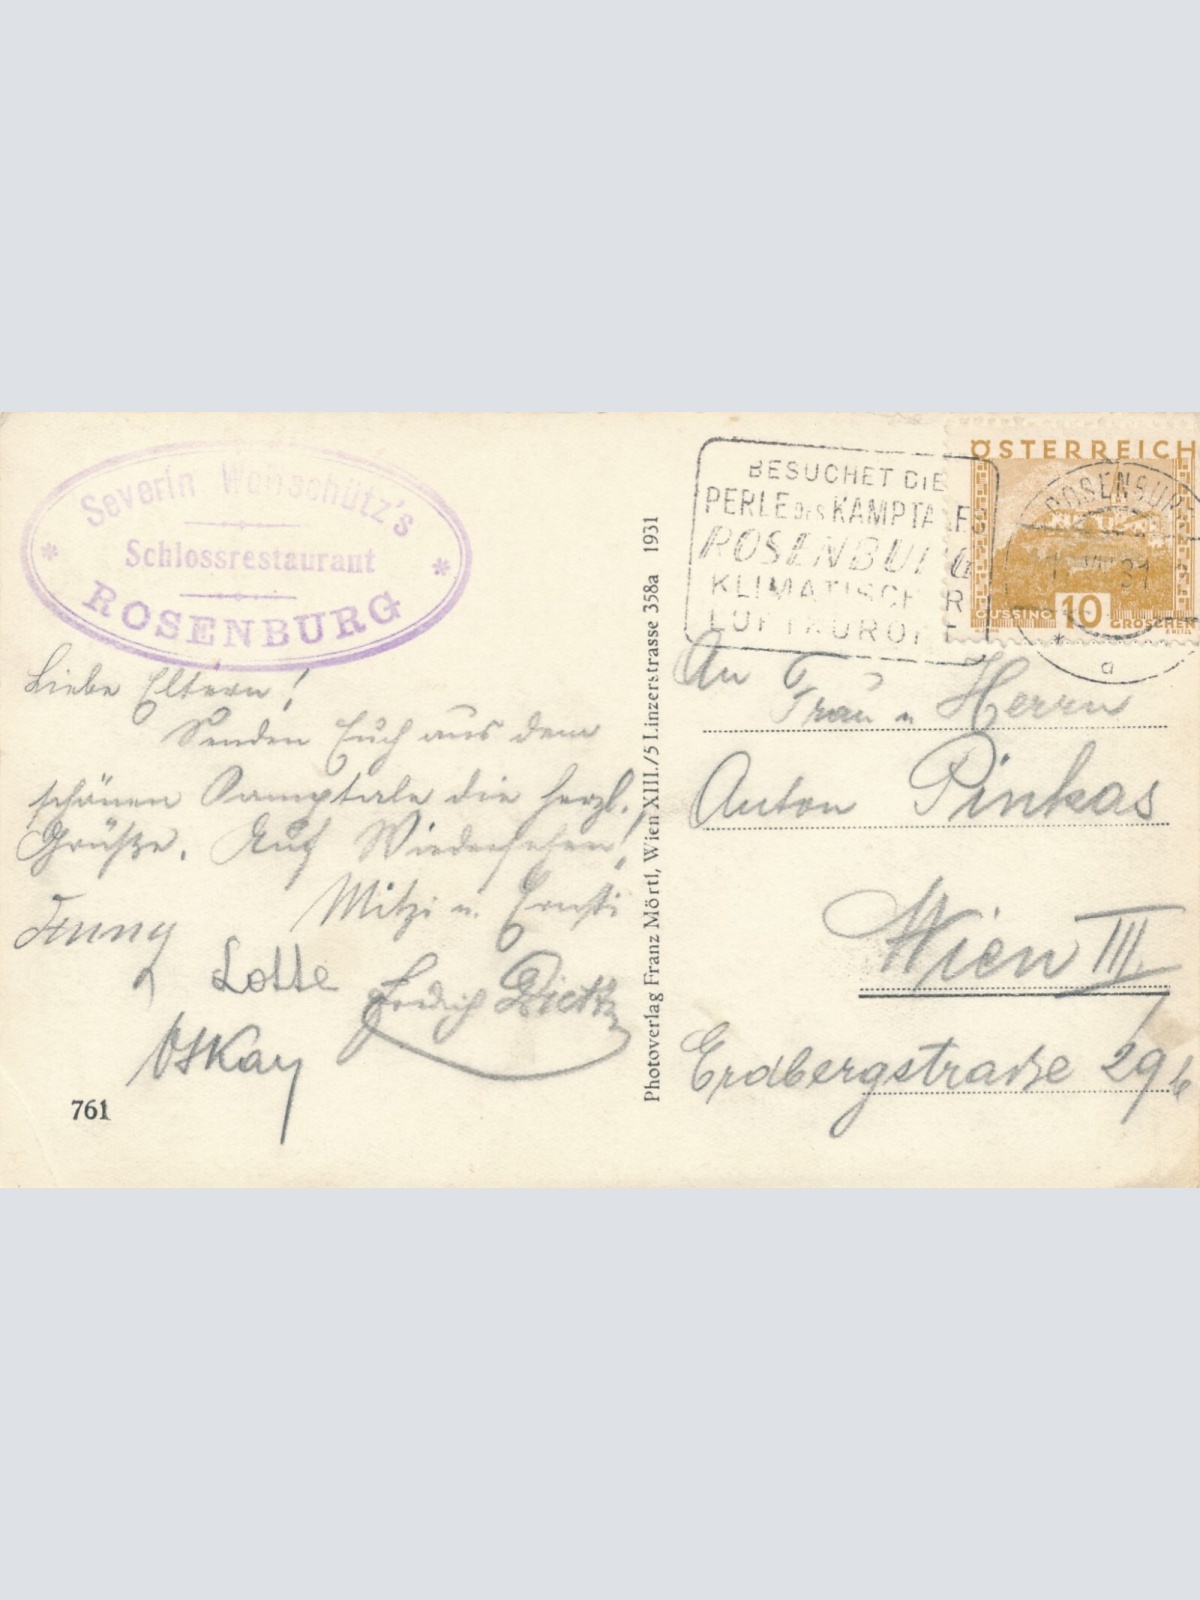 Severin Wanschütz's
Schlossrestaurant
ROSENBURG
Liebe Eltern!
Senden Euch aus dem
schönen Kamptale die herzl.
Grüße. Auf Wiedersehen!
Mitzi u. Ernsti
Lotte
Oskar
761
Photoverlag Franz Mörtl, Wien XIII./5 Linzerstrasse 358a 1931
BESUCHET DIE
PERLE DES KAMPTALES
ROSENBURG
KLIMATISCHER
LUFTKURORT
ÖSTERREICH
ROSENBURG
31
a
GÜSSING 10 GROSCHEN
An
Frau u. Herrn
Anton Pinkas
Wien III
Erdbergstraße 29